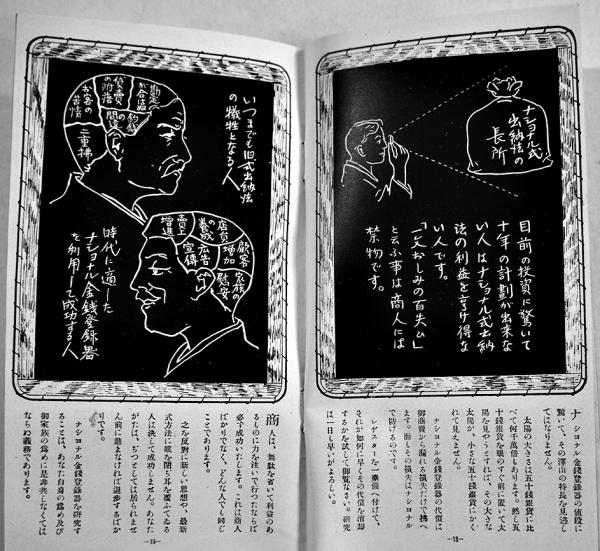 ナショナル式
出納法の
長所
目前の投資に驚いて
十年の計劃が出来な
い人はナショナル式出納
法の利益を享け得な
い人です。
「一文おしみの百失ひ」
と云ふ事は商人には
禁物です。
ナショナル金錢登録器の値段に
驚いて、その澤山の特長を見逃し
てはなりません。
太陽の大きさは五十錢銀貨に比
べて何千萬倍もあります。然し五
十錢銀貨を眼のすぐ前に置いて太
陽を見やうとすれば、その大きな
太陽が、小さな五十錢銀貨にかく
れて見えません。
ナショナル金錢登録器の代償は
御商賣から漏れる損失だけで拂へ
ます。而もその損失はナショナル
で防げるのです。
レヂスターを一臺備へ付けて、
それが如何に早くその代價を消却
するかを試して御覧なさい。研究
は一日も早いがよろしい。
—18—
いつまでも旧式出納法
の犠牲となる人
勘定が合はぬ
貸賣の附落
お客の苦情
釣錢の間違
二重拂ひ
時代に適した
ナショナル金錢登録器
を利用して成功する人
賣上増進
店員の養成
顧客増加
廣告宣傳
家族の慰安
商人は、無駄を省いて利益のあ
るものに力を注いで行つたならば
必ず成功いたします。これは商人
ばかりでなく、どんな人でも同じ
ことであります。
之を反對に新しい思想や、最新
式方法に眼を閉ぢ耳を覆ふてゐる
人は決して成功しません。あなた
がたは、ぢつとしては居られませ
ん前に進まなければ退歩するばか
りです。
ナショナル金錢登録器を研究す
ることは、あなた自身の為め及び
御家族の為めに是非共しなくては
ならぬ義務であります。
—19—